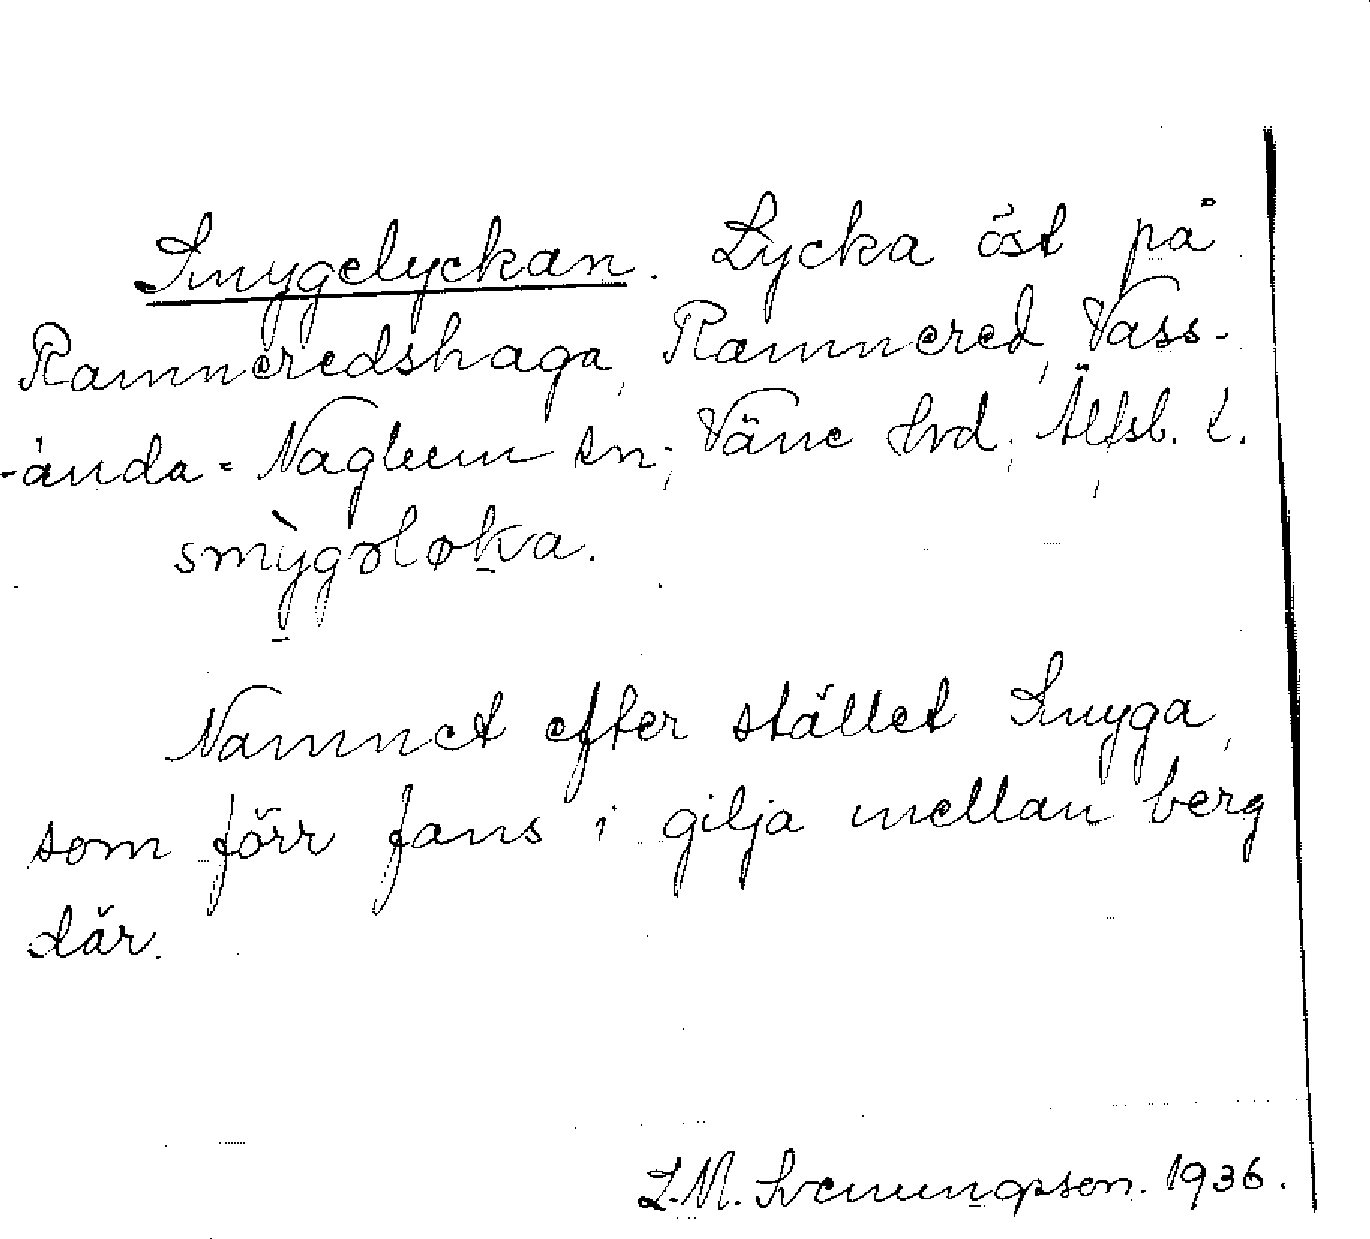 Smygelyckan. Lycka öst på
Ramneredshaga, Ramnered, Vass-
-ända-Naglum sn; Väne hrd; Älfsb. l.
smỳgələka.
Namnet efter stället Smyga,
som förr fans i gilja mellan berg
där.
L.M. Svenungsson. 1936.